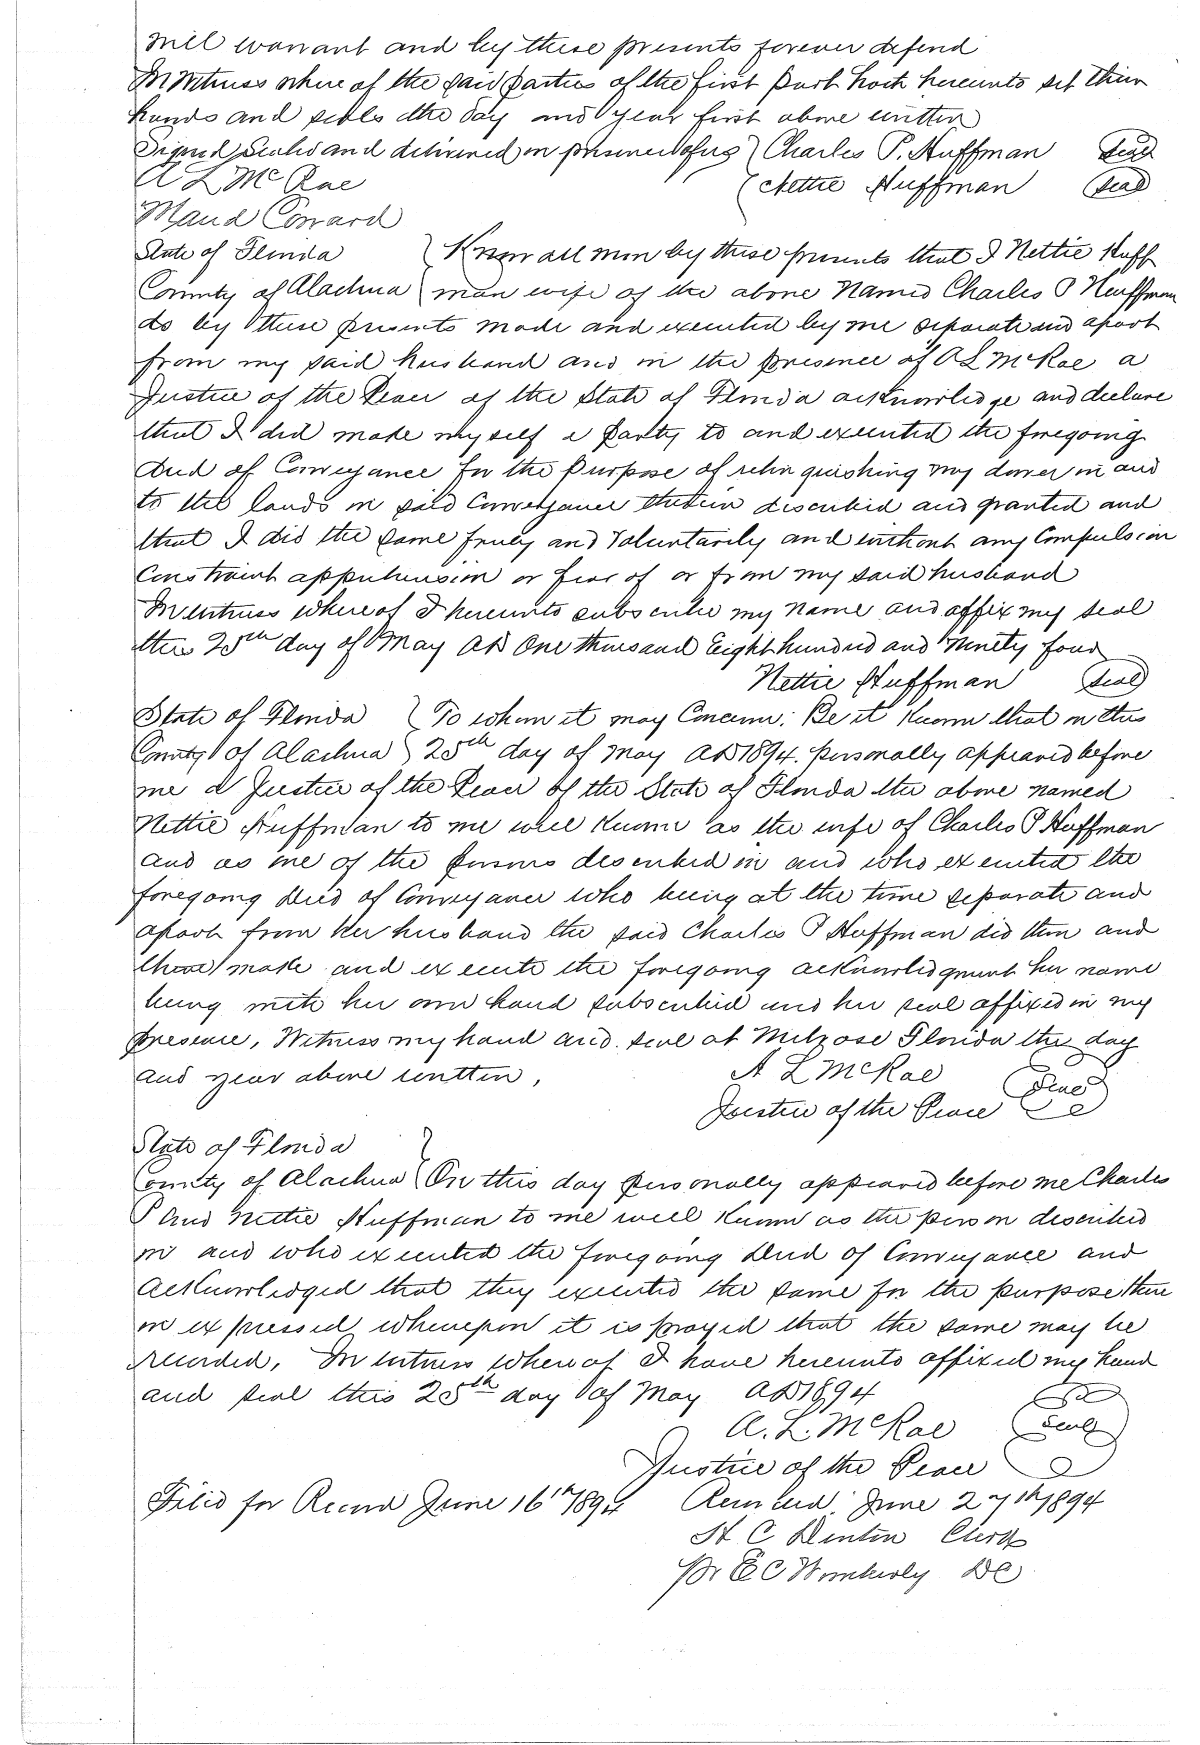 will warrant and by these presents forever defend
In Witness where of the said parties of the first part hath hereunto set their
hands and seals the day and year first above written
Signed Sealed and delivered in presence of us } Charles P. Huffman (Seal)
A L McRae ( Nettie Huffman (Seal)
Maud Coward
State of Florida } Know all men by these presents that I Nettie Huff
County of Alachua } man wife of the above Named Charles P Huffman
do by these presents made and executed by me separate and apart
from my said husband and in the presence of A L McRae a
Justice of the Peace of the State of Florida acknowledge and declare
that I did make myself a party to and executed the foregoing
deed of Conveyance for the purpose of relinquishing my dower in and
to the lands in said Conveyance therein described and granted and
that I did the same freely and Voluntarily and without any Compulsion
Constraint apprehension or fear of or from my said husband
In witness whereof I hereunto subscribe my name and affix my seal
this 25th day of May AD One thousand Eight hundred and Ninety four
Nettie Huffman (Seal)
State of Florida } To whom it may Concern: Be it Known that on this
County of Alachua } 25th day of May AD 1894. personally appeared before
me a Justice of the Peace of the State of Florida the above named
Nettie Huffman to me well Known as the wife of Charles P Huffman
and as one of the persons described in and who executed the
foregoing Deed of Conveyance who being at the time separate and
apart from her husband the said Charles P Huffman did then and
there make and execute the foregoing acknowledgment her name
being with her own hand subscribed and her seal affixed in my
presence, Witness my hand and seal at Melrose Florida the day
and year above written, A L McRae (Seal)
Justice of the Peace
State of Florida }
County of Alachua } On this day personally appeared before me Charles
P and Nettie Huffman to me well Known as the person described
in and who executed the foregoing Deed of Conveyance and
acknowledged that they executed the same for the purpose there
in expressed whereupon it is prayed that the same may be
recorded, In witness whereof I have hereunto affixed my hand
and seal this 25th day of May AD 1894
A. L. McRae (Seal)
Justice of the Peace
Filed for Record June 16th 1894 Recorded June 27th 1894
H C Denton Clerk
pr E C Wimberly DC